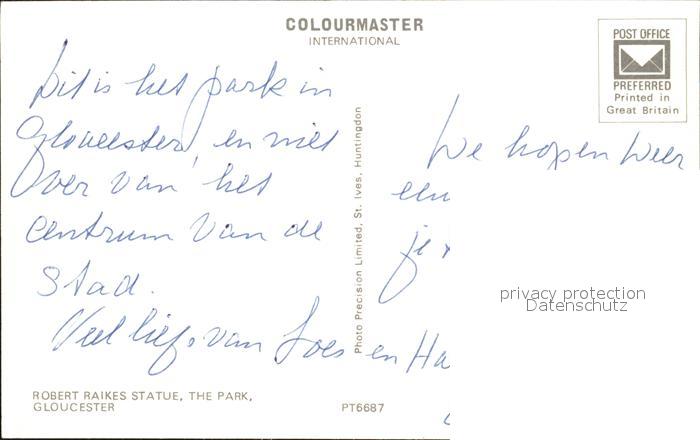 COLOURMASTER
INTERNATIONAL
POST OFFICE
PREFERRED
Printed in
Great Britain
Dit is het park in
Gloucester, en niet
over van het
centrum van de
stad.
Veel liefs van Loes en Ha
We hopen weer
een
je
Photo Precision Limited, St. Ives, Huntingdon
privacy protection
Datenschutz
ROBERT RAIKES STATUE, THE PARK,
GLOUCESTER
PT6687